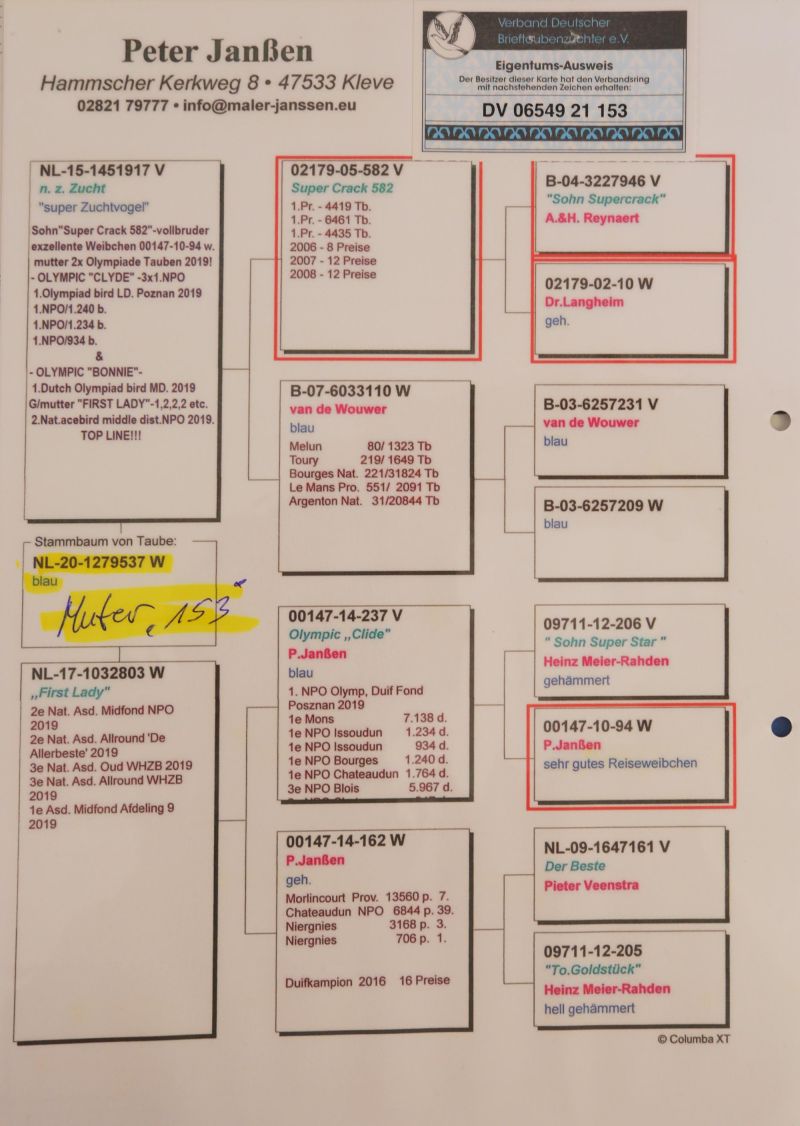 Peter Janßen
Hammscher Kerkweg 8 • 47533 Kleve
02821 79777 • info@maler-janssen.eu
Verband Deutscher
Brieftaubenzüchter e.V.
Eigentums-Ausweis
Der Besitzer dieser Karte hat den Verbandsring
mit nachstehenden Zeichen erhalten:
DV 06549 21 153
NL-15-1451917 V
n. z. Zucht
"super Zuchtvogel"
Sohn"Super Crack 582"-vollbruder
exzellente Weibchen 00147-10-94 w.
mutter 2x Olympiade Tauben 2019!
- OLYMPIC "CLYDE" -3x1.NPO
1.Olympiad bird LD. Poznan 2019
1.NPO/1.240 b.
1.NPO/1.234 b.
1.NPO/934 b.
&
- OLYMPIC "BONNIE"-
1.Dutch Olympiad bird MD. 2019
G/mutter "FIRST LADY"-1,2,2,2 etc.
2.Nat.acebird middle dist.NPO 2019.
TOP LINE!!!
Stammbaum von Taube:
NL-20-1279537 W
blau
Mutter, 153
NL-17-1032803 W
„First Lady"
2e Nat. Asd. Midfond NPO
2019
2e Nat. Asd. Allround 'De
Allerbeste' 2019
3e Nat. Asd. Oud WHZB 2019
3e Nat. Asd. Allround WHZB
2019
1e Asd. Midfond Afdeling 9
2019
02179-05-582 V
Super Crack 582
1.Pr. - 4419 Tb.
1.Pr. - 6461 Tb.
1.Pr. - 4435 Tb.
2006 - 8 Preise
2007 - 12 Preise
2008 - 12 Preise
B-07-6033110 W
van de Wouwer
blau
Melun 80/ 1323 Tb
Toury 219/ 1649 Tb
Bourges Nat. 221/31824 Tb
Le Mans Pro. 551/ 2091 Tb
Argenton Nat. 31/20844 Tb
00147-14-237 V
Olympic „Clide"
P.Janßen
blau
1. NPO Olymp, Duif Fond
Posznan 2019
1e Mons 7.138 d.
1e NPO Issoudun 1.234 d.
1e NPO Issoudun 934 d.
1e NPO Bourges 1.240 d.
1e NPO Chateaudun 1.764 d.
3e NPO Blois 5.967 d.
00147-14-162 W
P.Janßen
geh.
Morlincourt Prov. 13560 p. 7.
Chateaudun NPO 6844 p. 39.
Niergnies 3168 p. 3.
Niergnies 706 p. 1.
Duifkampion 2016 16 Preise
B-04-3227946 V
"Sohn Supercrack"
A.&H. Reynaert
02179-02-10 W
Dr.Langheim
geh.
B-03-6257231 V
van de Wouwer
blau
B-03-6257209 W
blau
09711-12-206 V
" Sohn Super Star "
Heinz Meier-Rahden
gehämmert
00147-10-94 W
P.Janßen
sehr gutes Reiseweibchen
NL-09-1647161 V
Der Beste
Pieter Veenstra
09711-12-205
"To.Goldstück"
Heinz Meier-Rahden
hell gehämmert
© Columba XT